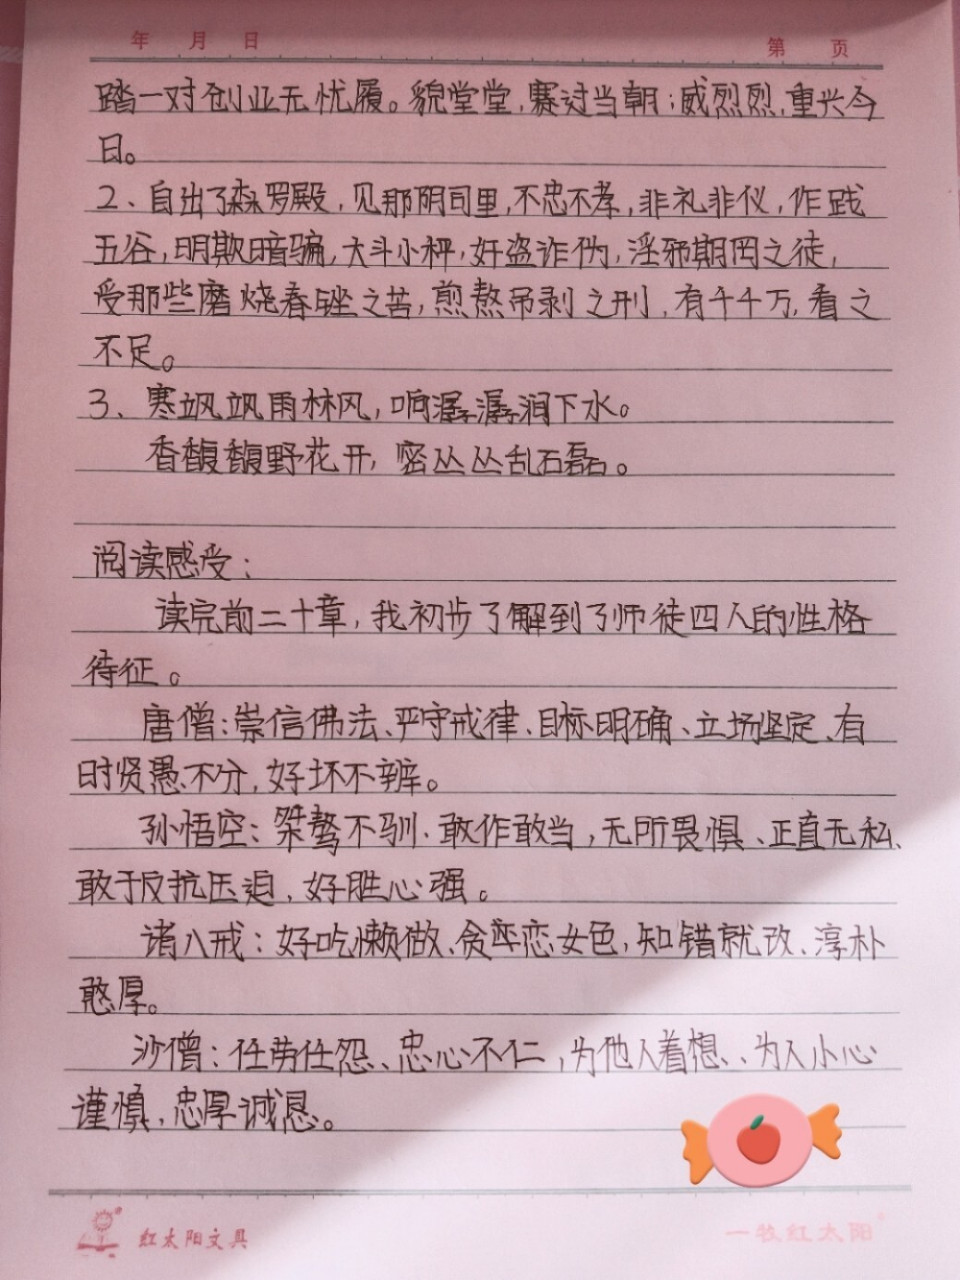 年 月 日 第 页
踏一对创业无忧履。貌堂堂,赛过当朝;威烈烈,重兴今
日。
2、自出了森罗殿,见那阴司里,不忠不孝,非礼非仪,作践
五谷,明欺暗骗,大斗小秤,奸盗诈伪,淫邪期罔之徒,
受那些磨烧舂锉之苦,煎熬吊剥之刑,有千千万,看之
不足。
3、寒飒飒雨林风,响潺潺涧下水。
香馥馥野花开,密丛丛乱石磊。
阅读感受:
读完前二十章,我初步了解到了师徒四人的性格
待征。
唐僧:崇信佛法、严守戒律、目标明确、立场坚定、有
时贤愚不分,好坏不辨。
孙悟空:桀骜不驯.敢作敢当,无所畏惧、正直无私、
敢于反抗压迫、好胜心强。
诸八戒:好吃懒做、贪恋女色,知错就改、淳朴
憨厚。
沙僧:任劳任怨、忠心不仁,为他人着想、、为人小心
谨慎,忠厚诚恳。
红太阳文具
一牧红太阳